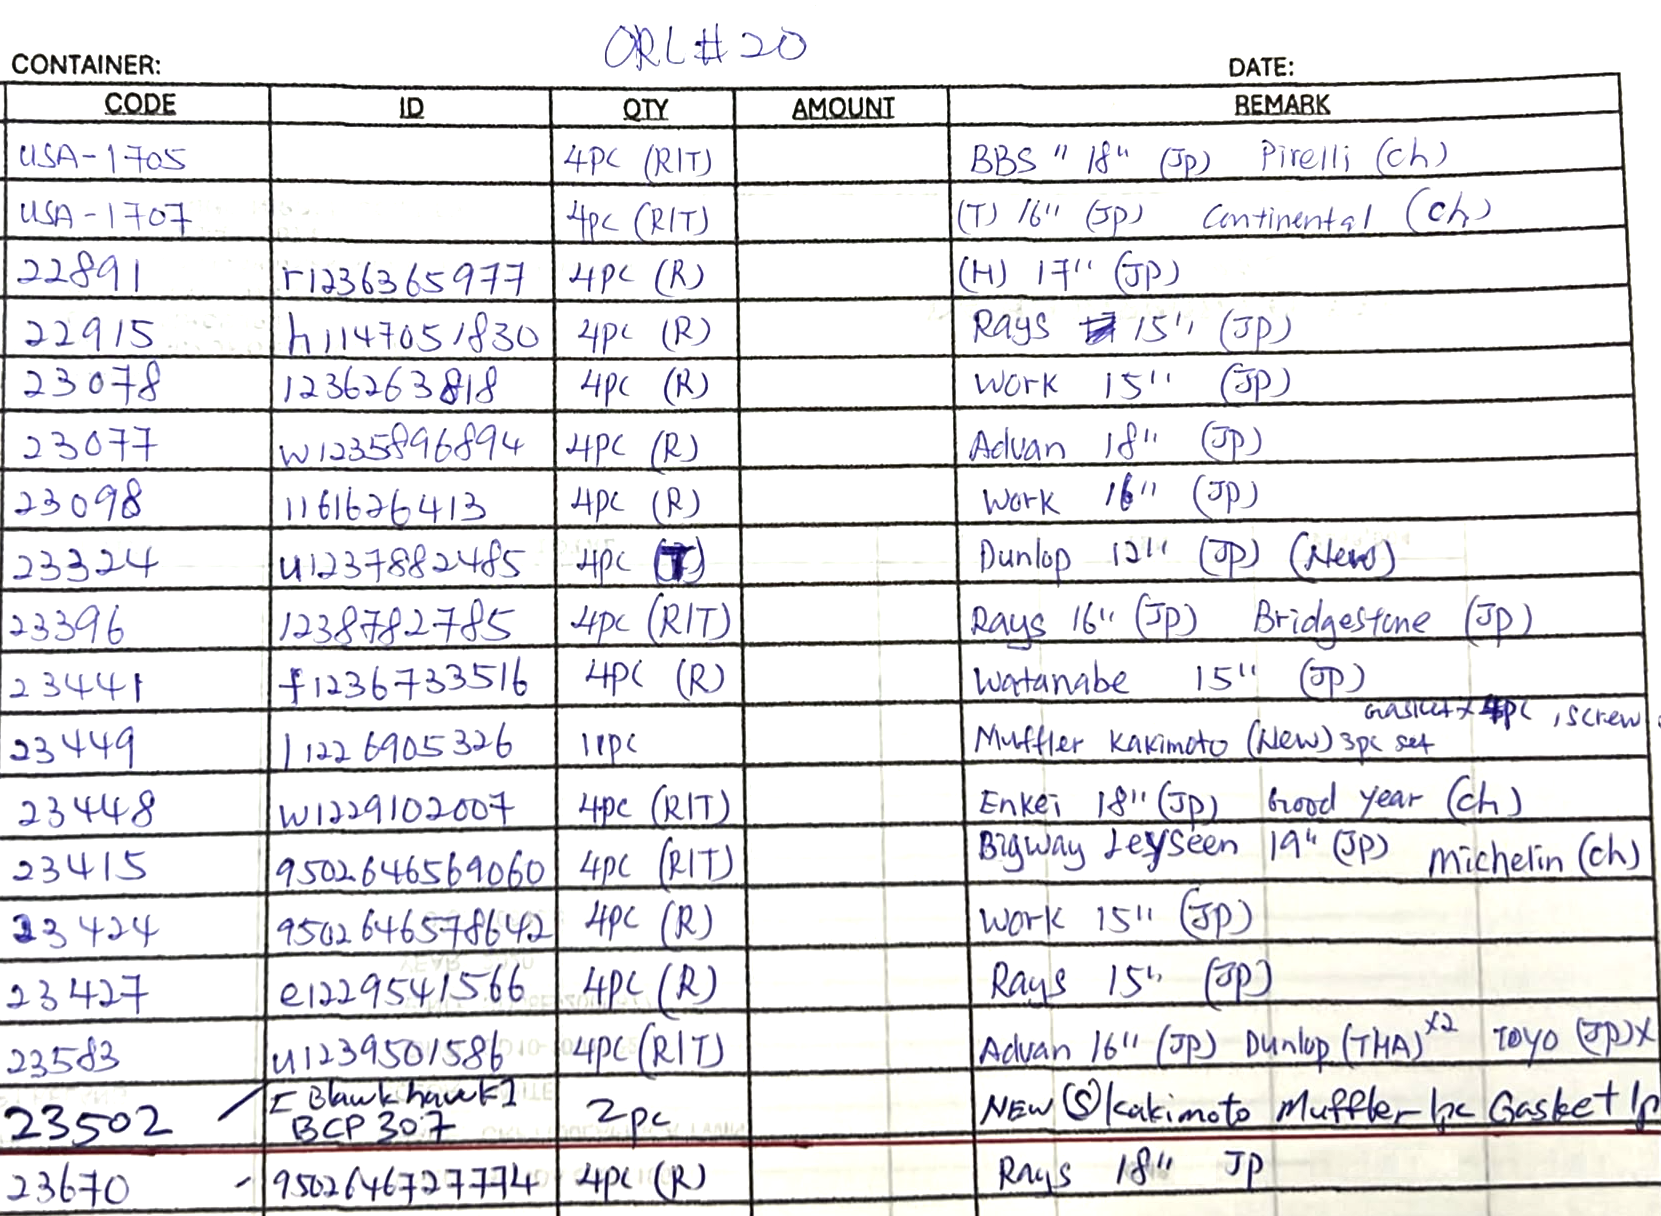 ORL#20
CONTAINER: DATE:
CODE ID QTY AMOUNT BEMARK
USA-1705 4PC (R|T) BBS " 18" (JP) Pirelli (Ch)
USA-1707 4pc (R|T) (T) 16" (JP) Continental (Ch)
22891 r1236365977 4PC (R) (H) 17" (JP)
22915 h1147051830 4PC (R) Rays 15" (JP)
23078 1236263818 4PC (R) Work 15" (JP)
23077 w1235896894 4PC (R) Advan 18" (JP)
23098 1161626413 4PC (R) Work 16" (JP)
23324 u1237882485 4PC (T) Dunlop 12" (JP) (New)
23396 1238782785 4PC (R|T) Rays 16" (JP) Bridgestone (JP)
23441 f1236733516 4PC (R) Watanabe 15" (JP)
Gasket x 4pc , screw
23449 l1226905326 11pc Muffler Kakimoto (New) 3pc set
23448 w1229102007 4pc (R|T) Enkei 18" (JP) Good year (Ch)
23415 9502646569060 4PC (R|T) Bigway Leyseen 19" (JP) Michelin (Ch)
23424 9502646578642 4PC (R) Work 15" (JP)
23427 e1229541566 4PC (R) Rays 15" (JP)
23583 u1239501586 4PC (R|T) Advan 16" (JP) Dunlop (THA) x2 TOYO (JP) x
[Blawkhawk]
23502 BCP 307 2pc NEW (S) Kakimoto Muffler 1pc Gasket 1p
23670 - 9502646727774 4PC (R) Rays 18" JP